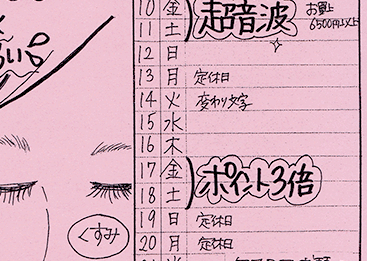 10 金
超音波
お買上
6500円以上
11 土
12 日
13 月 定休日
14 火
15 水
16 木
17 金
ポイント3倍
18 土
19 日 定休日
20 月 定休日
くすみ